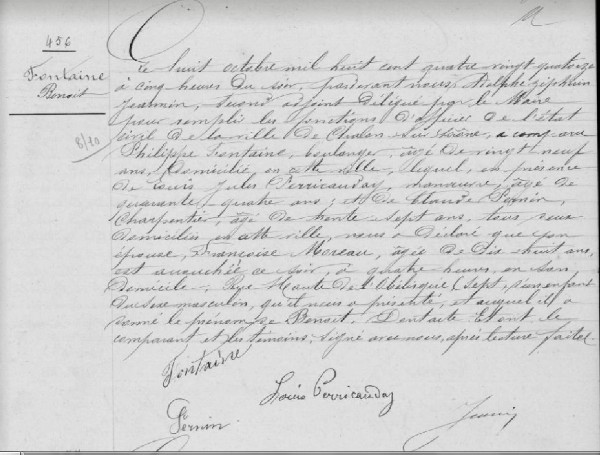 436
Fontaine
Benoit
8/10
Le huit octobre mil huit cent quatre vingt quatorze
à cinq heures du soir, pardevant nous, Adolphe
Jeannin, second adjoint délégué par le Maire
pour remplir les fonctions d'officier de l'état
civil de la ville de Chalon sur Saône, a comparu
Philippe Fontaine, boulanger, âgé de vingt neuf
ans, domicilié en cette ville, lequel, en présence
de Louis Jules Perricauday, manœuvre, âgé de
quarante quatre ans; et de Claude Pernin,
Charpentier, âgé de trente sept ans, tous deux
domiciliés en cette ville, nous a déclaré que son
épouse, Françoise Moreau, âgée de dix huit ans,
est accouchée ce soir, à quatre heures, en son
domicile, Rue Haute de l'Obélisque, sept, d'un enfant
du sexe masculin, qu'il nous a présenté, et auquel il a
donné le prénom de Benoit. Dont acte. Et ont le
comparant et les témoins, signé avec nous, après lecture faite.
Fontaine
Louis Perricauday
Pernin